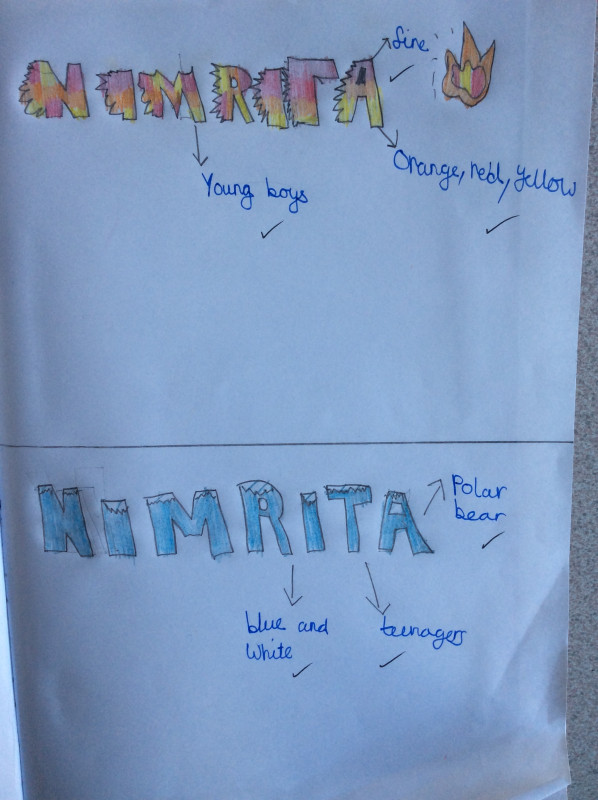 NIMRITA
fire
Orange, red, yellow
Young boys
NIMRITA
Polar
bear
blue and
White
teenagers